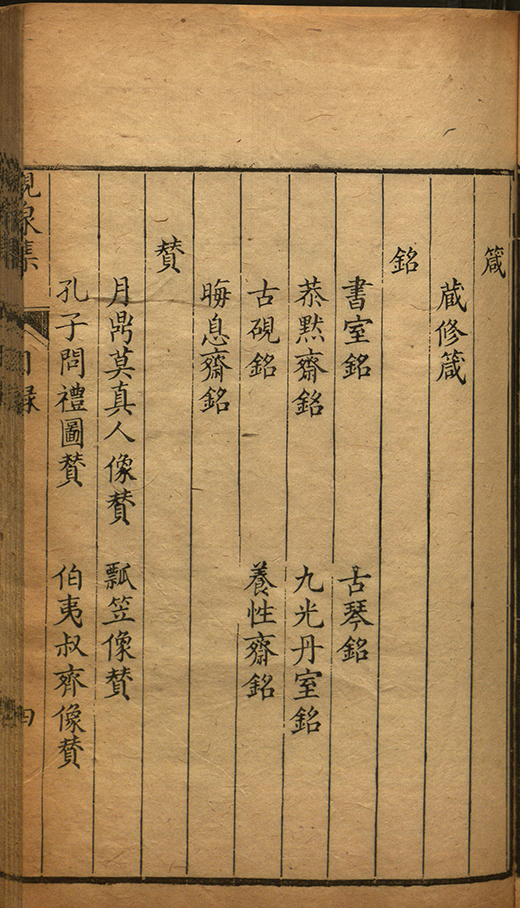 箴
藏修箴
銘
書室銘　古琴銘
恭默齋銘　九光丹室銘
古硯銘　養性齋銘
晦息齋銘
賛
月鼎莫真人像賛　瓢笠像賛
孔子問禮圖賛　伯夷叔齊像賛
峴泉集　目録　四